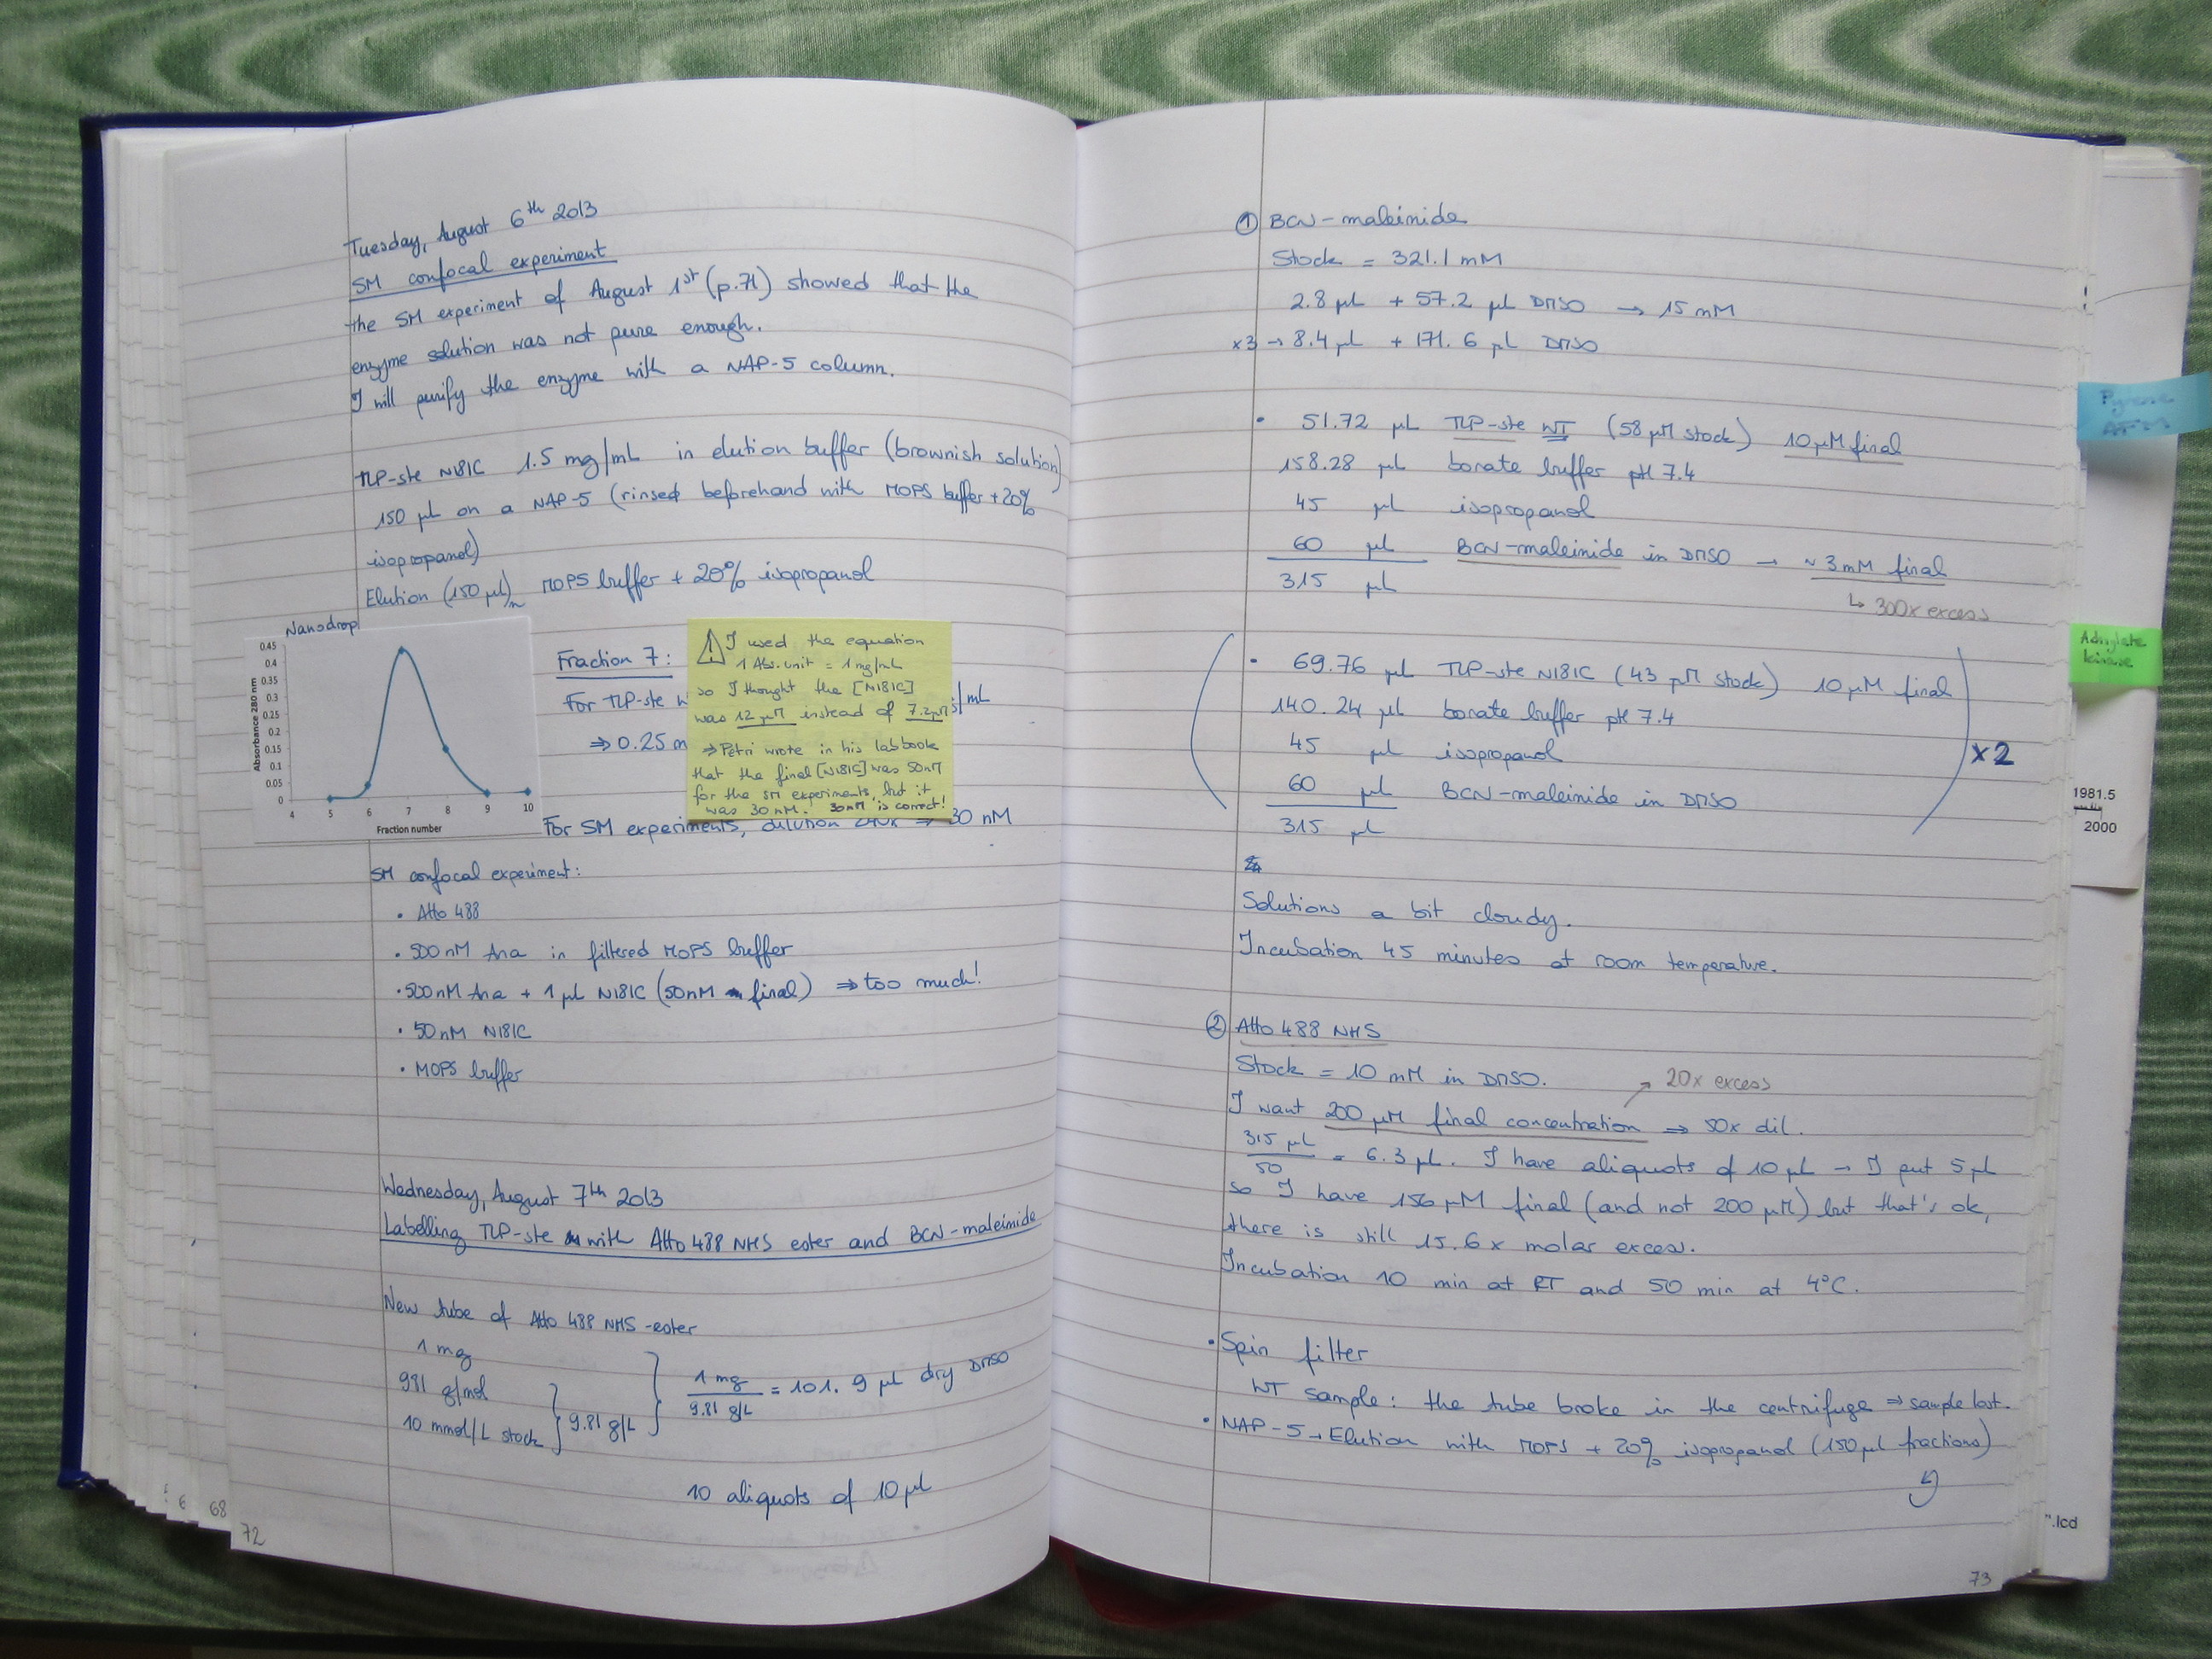 Tuesday, August 6th 2013
SM confocal experiment
the SM experiment of August 1st (p.71) showed that the
enzyme solution was not pure enough.
I will purify the enzyme with a NAP-5 column.
TLP-ste N181C 1.5 mg/mL in elution buffer (brownish solution)
150 µL on a NAP-5 (rinsed beforehand with MOPS buffer + 20%
isopropanol)
Elution (150 µL) MOPS buffer + 20% isopropanol
Nanodrop
0.45
0.4
0.35
0.3
0.25
0.2
0.15
0.1
0.05
0
Absorbance 280 nm
4 5 6 7 8 9 10
Fraction number
Fraction 7:
For TLP-ste
/mL
⇒ 0.25 m
⚠ I used the equation
1 Abs. unit = 1 mg/mL
so I thought the [N181C]
was 12 µM instead of 7.2 µM
⇒ Petri wrote in his labbook
that the final [N181C] was 50nM
for the SM experiments, but it
was 30 nM. 30nM is correct!
For SM experiments, dilution 240x ⇒ 30 nM
SM confocal experiment:
• Atto 488
• 500 nM Ana in filtered MOPS buffer
• 500 nM Ana + 1 µL N181C (50nM final) ⇒ too much!
• 50 nM N181C
• MOPS buffer
Wednesday, August 7th 2013
Labelling TLP-ste with Atto 488 NHS ester and BCN-maleimide
New tube of Atto 488 NHS-ester
1 mg
981 g/mol
10 mmol/L stock } 9.81 g/L } 1 mg / 9.81 g/L = 101.9 µL dry DMSO
10 aliquots of 10 µL
6 68
72
① BCN-maleinide
Stock = 321.1 mM
2.8 µL + 57.2 µL DMSO → 15 mM
x3 → 8.4 µL + 171.6 µL DMSO
• 51.72 µL TLP-ste WT (58 µM stock) 10 µM final
158.28 µL borate buffer pH 7.4
45 µL isopropanol
60 µL BCN-maleinide in DMSO → ~ 3 mM final
315 µL
↳ 300x excess
• 69.76 µL TLP-ste N181C (43 µM stock) 10 µM final
140.24 µL borate buffer pH 7.4
45 µL isopropanol
60 µL BCN-maleinide in DMSO
315 µL
x2
Solutions a bit cloudy.
Incubation 45 minutes at room temperature.
② Atto 488 NHS
Stock = 10 mM in DMSO.
↗ 20x excess
I want 200 µM final concentration ⇒ 50x dil.
315 µL / 50 = 6.3 µL. I have aliquots of 10 µL → I put 5 µL
so I have 156 µM final (and not 200 µM) but that's ok,
there is still 15.6 x molar excess.
Incubation 10 min at RT and 50 min at 4°C.
• Spin filter
WT sample: the tube broke in the centrifuge ⇒ sample lost.
• NAP-5 → Elution with MOPS + 20% isopropanol (150 µL fractions)
73
Pyrene
Adenylate
kinase
1981.5
2000
".lcd